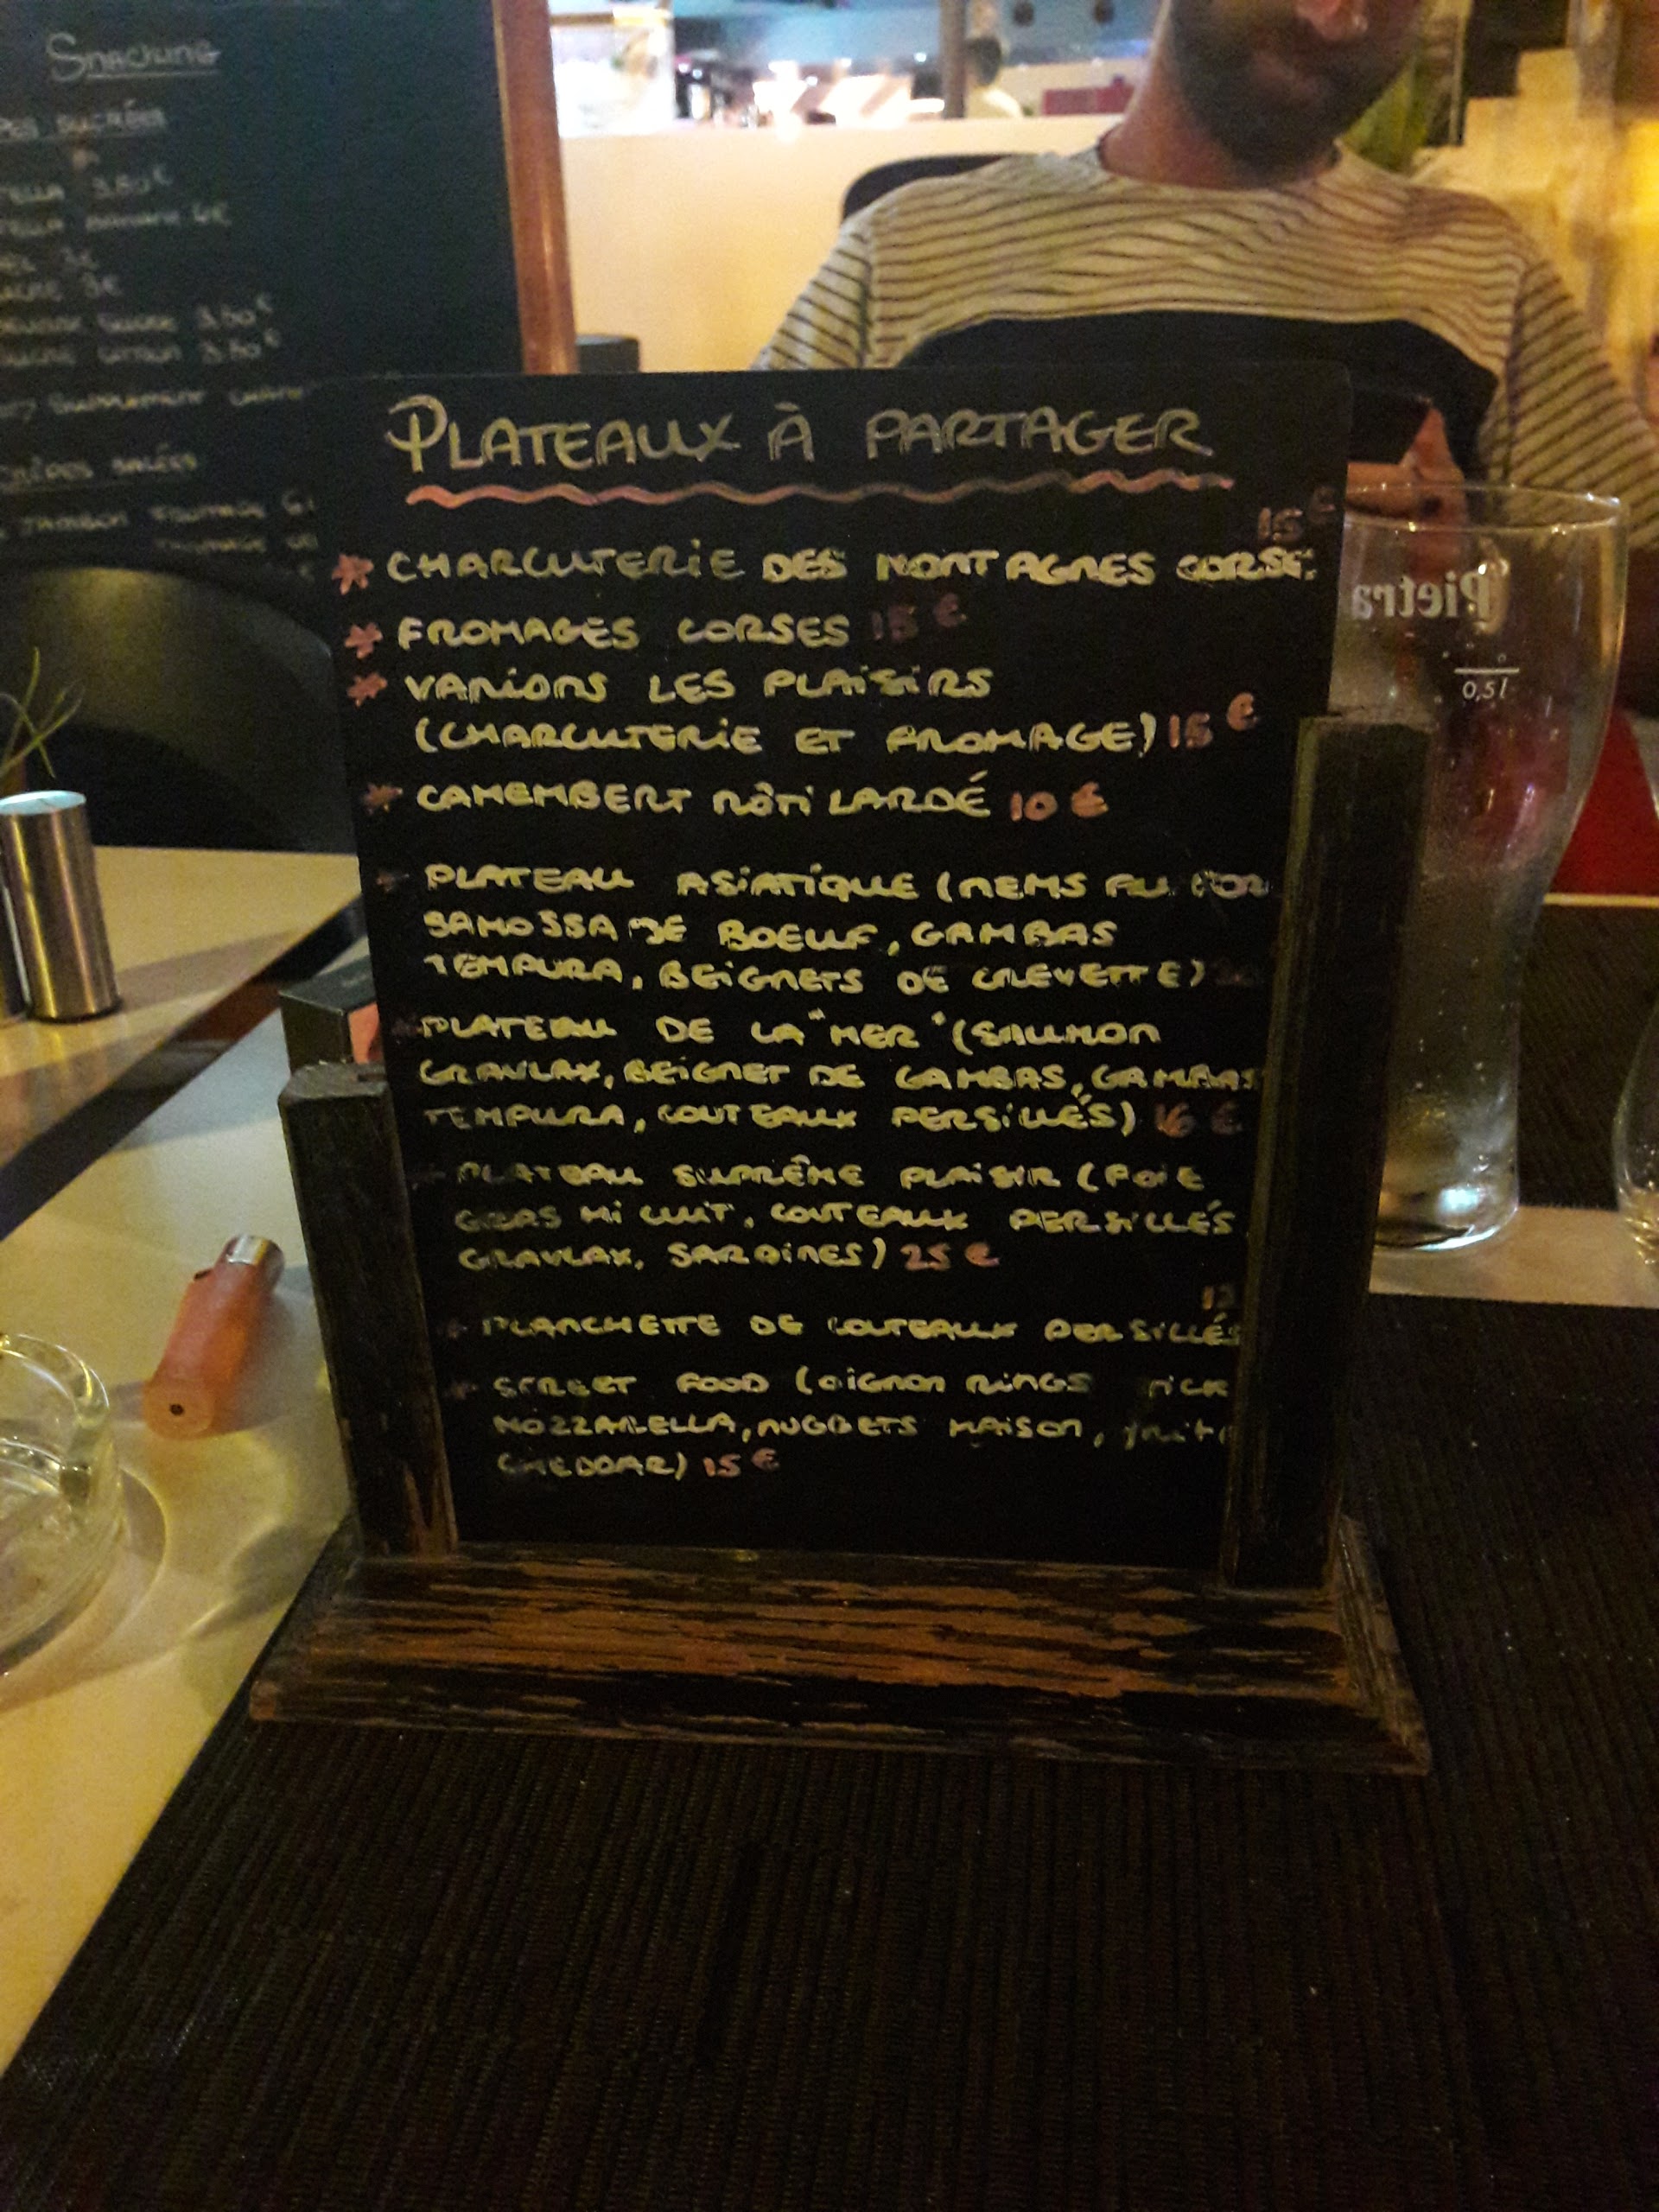 Snacking
SUCRÉES
3.50€
BANANE 4€
3€
3€
3.50€
CITRON 3.50€
SUPPLÉMENT
SALÉES
JAMBON FROMAGE
FROMAGE
PLATEAUX À PARTAGER
15€
* CHARCUTERIE DES MONTAGNES CORSE
* FROMAGES CORSES 15€
* VARIONS LES PLAISIRS
(CHARCUTERIE ET FROMAGE) 15€
* CAMEMBERT RÔTI LARDÉ 10€
PLATEAU ASIATIQUE (NEMS AU
SAMOSSA DE BOEUF, GAMBAS
TEMPURA, BEIGNETS DE CREVETTE)
PLATEAU DE LA "MER" (SAUMON
GRAVLAX, BEIGNET DE GAMBAS, GAMBAS
TEMPURA, COUTEAUX PERSILLÉS) 16€
PLATEAU SUPRÊME PLAISIR (FOIE
GRAS MI CUIT, COUTEAUX PERSILLÉS
GRAVLAX, SARDINES) 25€
PLANCHETTE DE COUTEAUX PERSILLÉS
STREET FOOD (OIGNON RINGS
MOZZARELLA, NUGGETS MAISON,
CHEDDAR) 15€
Pietra
0,5l